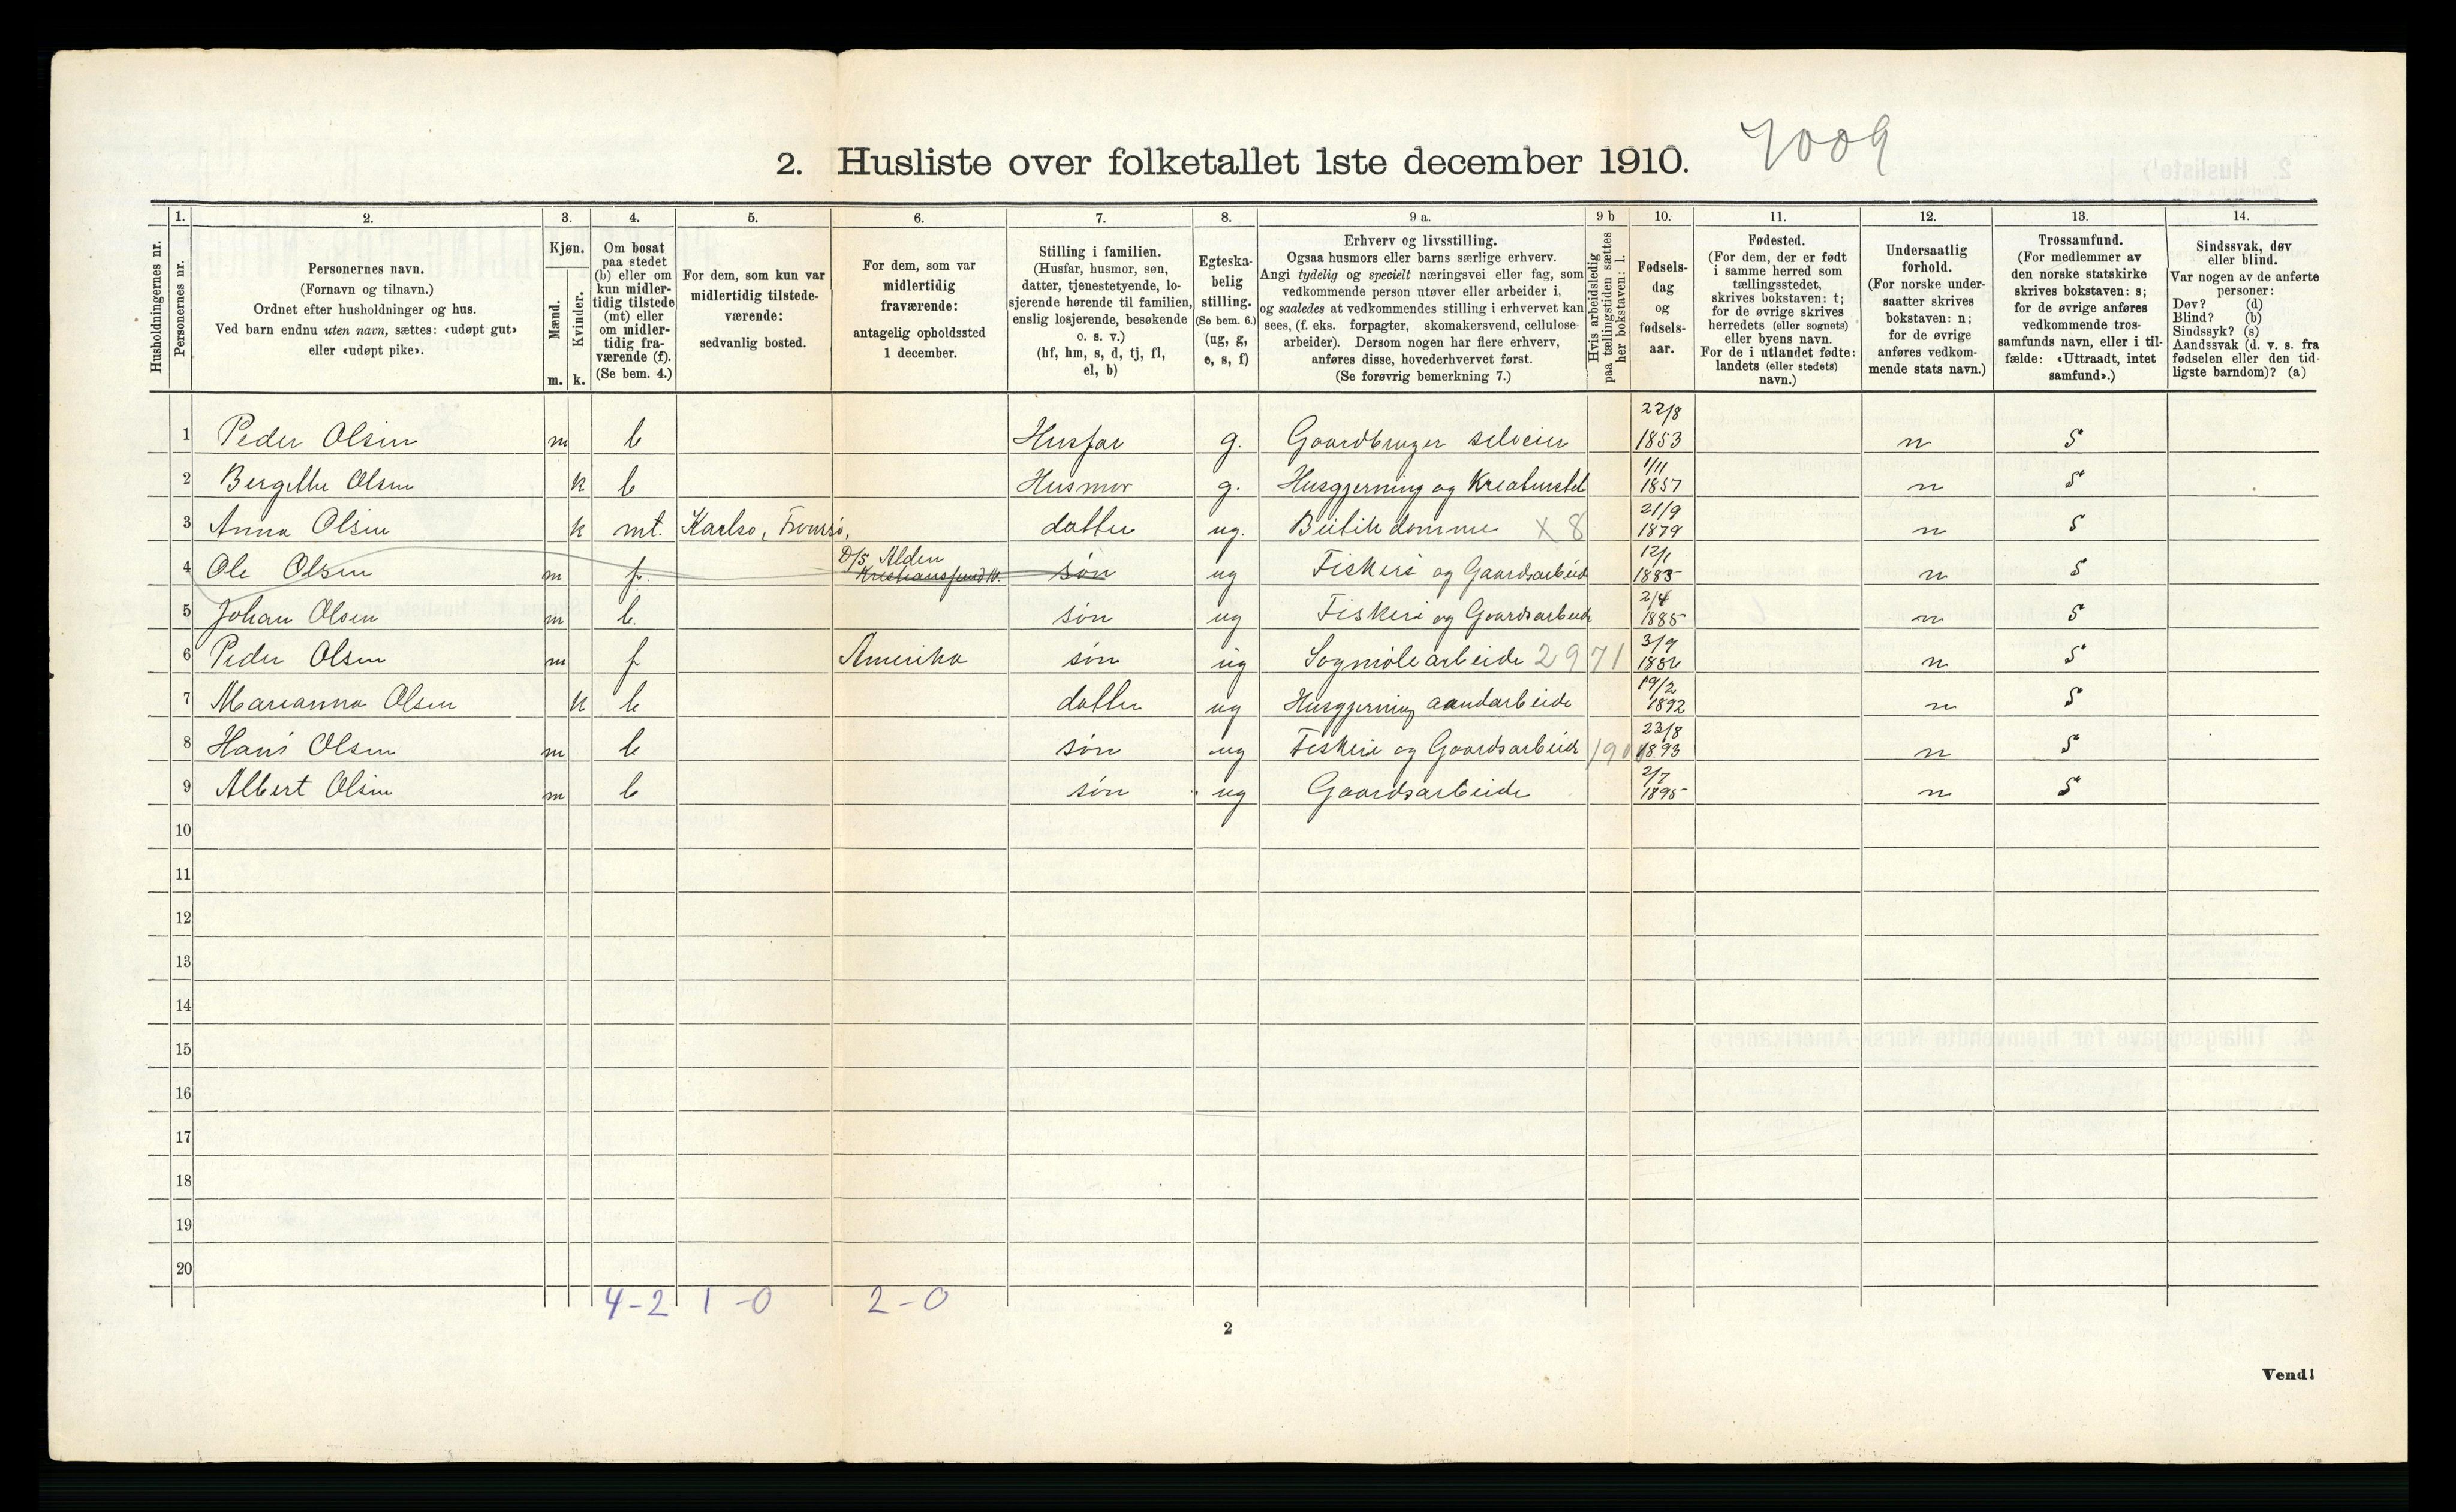 2. Husliste over folketallet 1ste december 1910. 7009
Husholdningernes nr.
1. Personernes nr.
2. Personernes navn. (Fornavn og tilnavn.) Ordnet efter husholdninger og hus. Ved barn endnu uten navn, sættes: «udøpt gut» eller «udøpt pike».
3. Kjøn. Mænd. m. Kvinder. k.
4. Om bosat paa stedet (b) eller om kun midlertidig tilstede (mt) eller om midlertidig fraværende (f). (Se bem. 4.)
5. For dem, som kun var midlertidig tilstedeværende: sedvanlig bosted.
6. For dem, som var midlertidig fraværende: antagelig opholdssted 1 december.
7. Stilling i familien. (Husfar, husmor, søn, datter, tjenestetyende, losjerende hørende til familien, enslig losjerende, besøkende o. s. v.) (hf, hm, s, d, tj, fl, el, b)
8. Egteskabelig stilling. (Se bem. 6.) (ug, g, e, s, f)
9 a. Erhverv og livsstilling. Ogsaa husmors eller barns særlige erhverv. Angi tydelig og specielt næringsvei eller fag, som vedkommende person utøver eller arbeider i, og saaledes at vedkommendes stilling i erhvervet kan sees, (f. eks. forpagter, skomakersvend, cellulosearbeider). Dersom nogen har flere erhverv, anføres disse, hovederhvervet først. (Se forøvrig bemerkning 7.)
9 b Hvis arbeidsledig paa tællingstiden sættes her bokstaven: l.
10. Fødselsdag og fødselsaar.
11. Fødested. (For dem, der er født i samme herred som tællingsstedet, skrives bokstaven: t; for de øvrige skrives herredets (eller sognets) eller byens navn. For de i utlandet fødte: landets (eller stedets) navn.)
12. Undersaatlig forhold. (For norske undersaatter skrives bokstaven: n; for de øvrige anføres vedkommende stats navn.)
13. Trossamfund. (For medlemmer av den norske statskirke skrives bokstaven: s; for de øvrige anføres vedkommende trossamfunds navn, eller i tilfælde: «Uttraadt, intet samfund».)
14. Sindssvak, døv eller blind. Var nogen av de anførte personer: Døv? (d) Blind? (b) Sindssyk? (s) Aandssvak (d. v. s. fra fødselen eller den tidligste barndom)? (a)
1 Peder Olsen m b Husfar g. Gaardbruger selveier 22/8 1853 n s
2 Bergitte Olsen k b Husmor g. Husgjerning og Kreaturstel 1/11 1857 n s
3 Anna Olsen k mt. Karlsø, Tromsø, datter ug. X 8 21/9 1879 n s
4 Ole Olsen m f. D/S Alden Kristiansund N. søn ug Fiskeri og Gaardsarbeide 12/1 1883 n s
5 Johan Olsen m b. søn ug Fiskeri og Gaardsarbeide 2/4 1885 n s
6 Peder Olsen m f Amerika søn ug Sagmølearbeide 2971 3/9 n s
7 Marianna Olsen k b datter ug Husgjerning 19/2 1892 n s
8 Hans Olsen m b søn ug Fiskeri og Gaardsarbeide 23/8 1893 n s
9 Albert Olsen m b søn ug Gaardsarbeide 2/7 1895 n s
10
11
12
13
14
15
16
17
18
19
20
4-2 1-0 2-0
2
Vend!